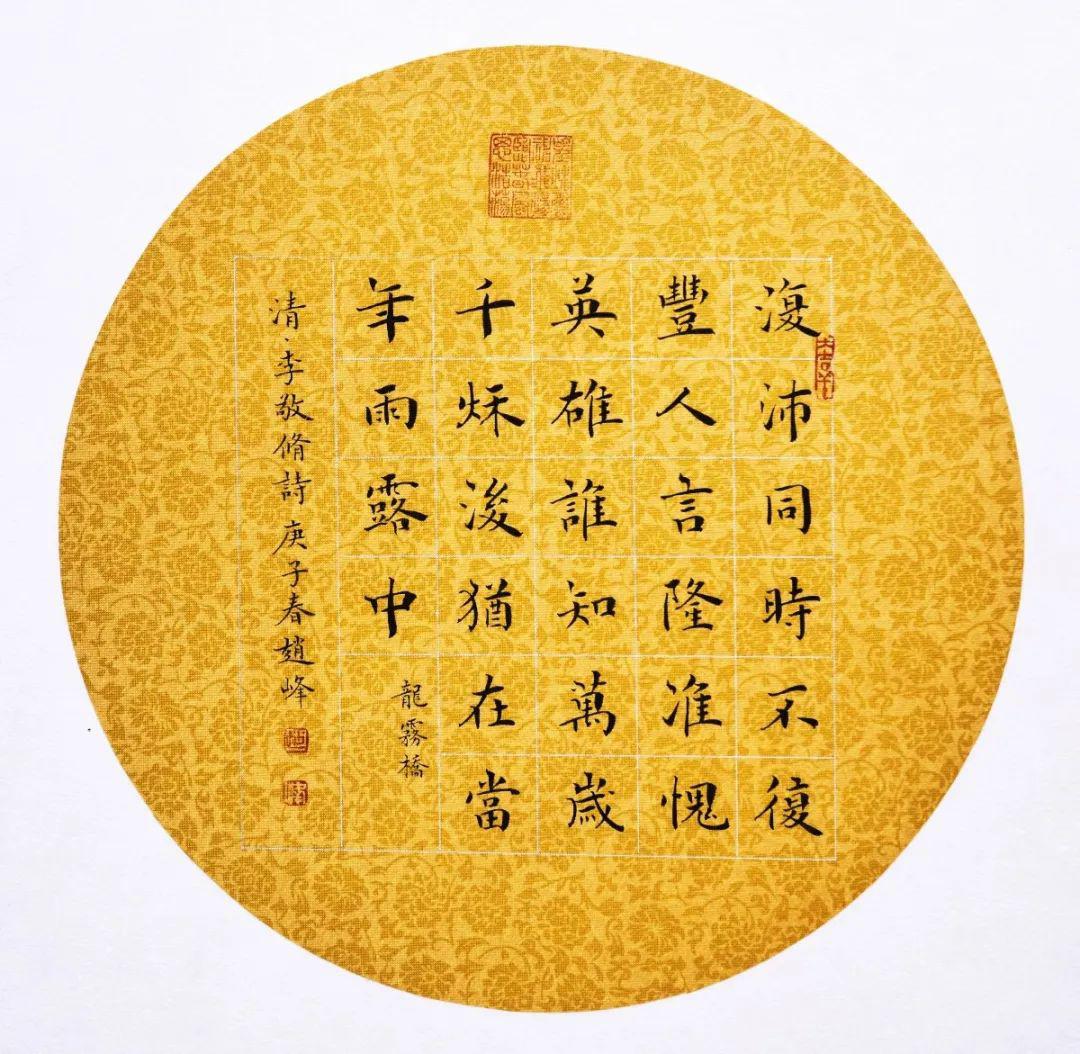 復沛同時不復
豐人言隆准愧
英雄誰知萬歲
千秌後猶在當
年雨露中
龍霧橋
清·李敬脩詩庚子春趙峰
大吉羊